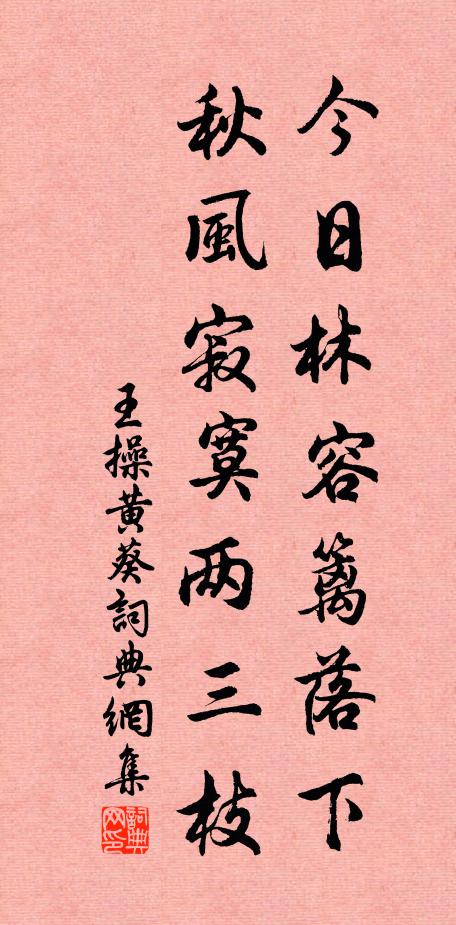 今日林容篱落下
秋風寂寞两三枝
王操黄葵詞典網集
詞典网印